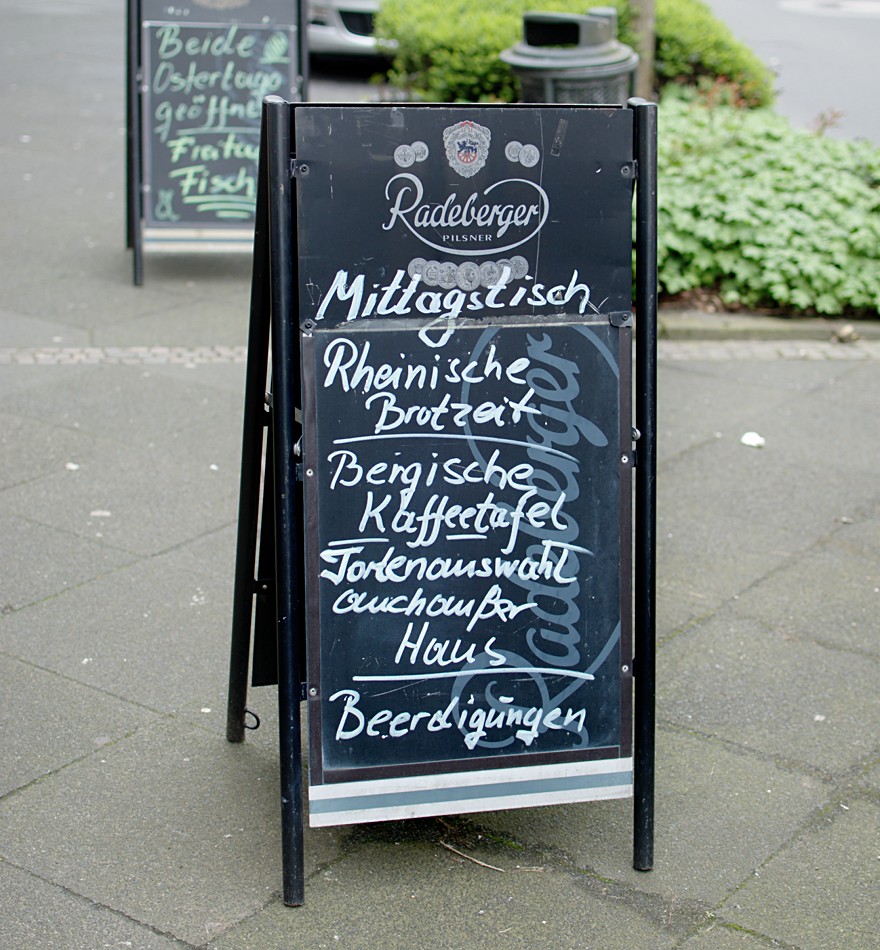 Beide
Ostertage
geöffne
Freitag
Fisch
Radeberger
PILSNER
Mittagstisch
Rheinische
Brotzeit
Bergische
Kaffeetafel
Tortenauswahl
auch außer
Haus
Beerdigungen
Radeberger